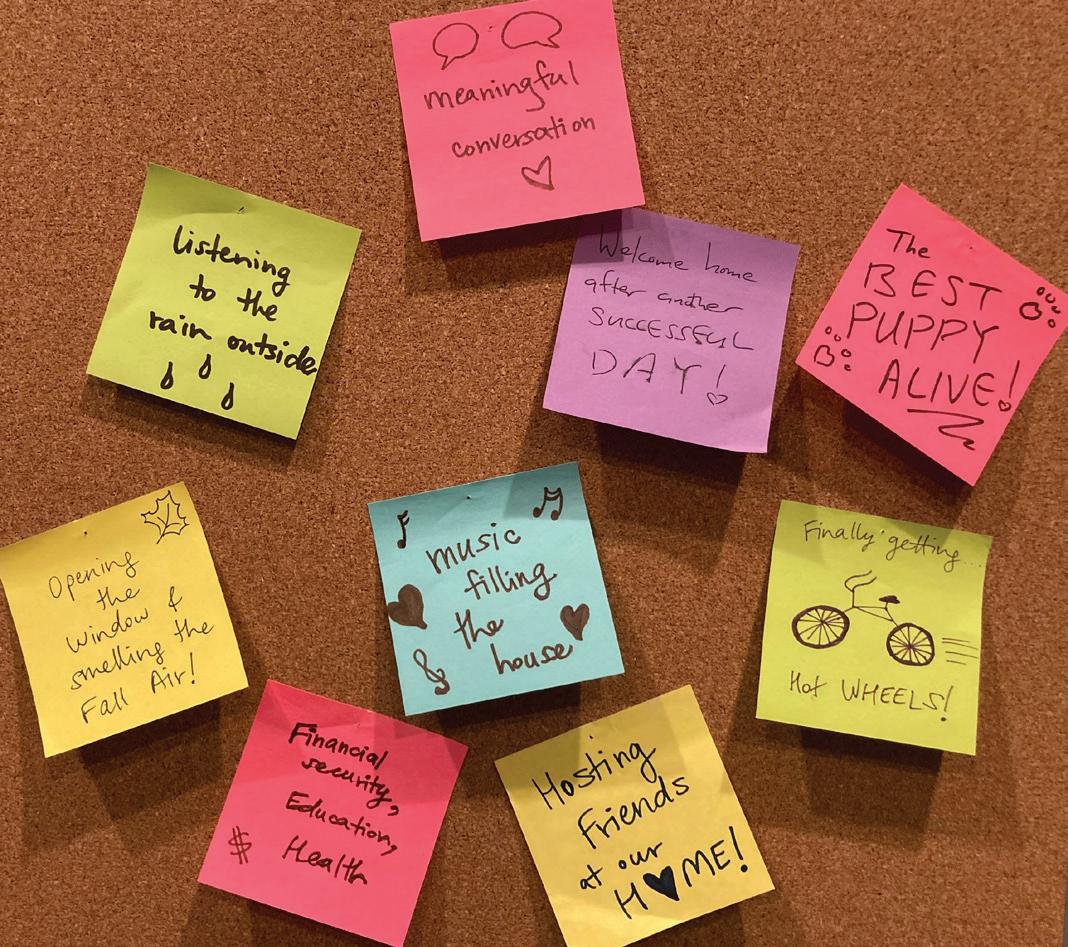 meaningful
conversation
Listening
to the
rain outside
Welcome home
after another
SUCCESSFUL
DAY!
The
BEST
PUPPY
ALIVE!
Opening
the
window &
smelling the
Fall Air!
music
filling
the
house
Finally getting...
Hot WHEELS!
Financial
security,
Education,
$ Health
Hosting
Friends
at our
H♥ME!